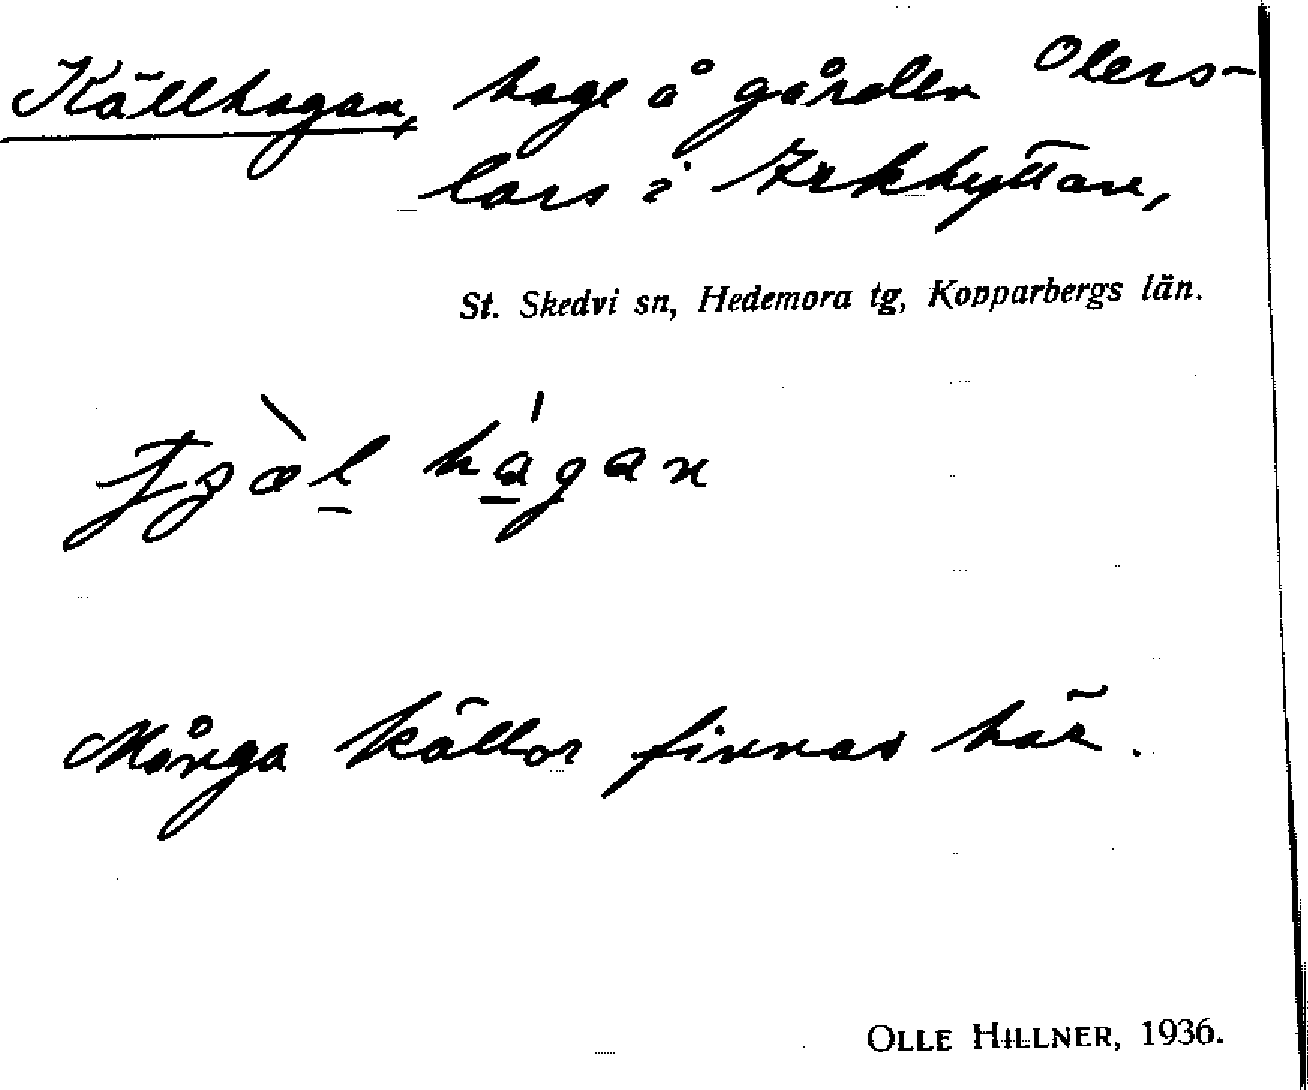 Källhagan, hage å gården Olers-
lars i Arkhyttan,
St. Skedvi sn, Hedemora tg, Kopparbergs län.
hágan
Många källor finnas här.
OLLE HILLNER, 1936.